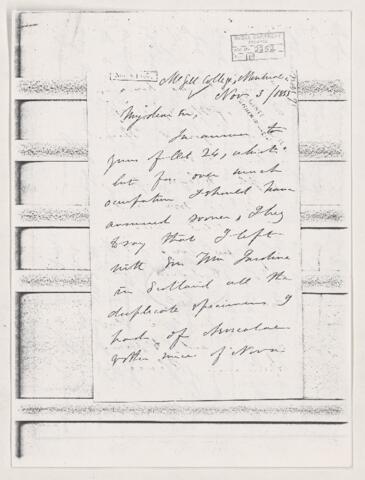 McGill College, Montreal
Nov 3 / 1855
My dear Sir,
In answer to
yours of Oct 24, which
but for over much
occupation I should have
answered sooner, I beg
to say that I left
with Sir Wm Jardine
in Scotland all the
duplicate specimens I
had, of
& other mice of Nova